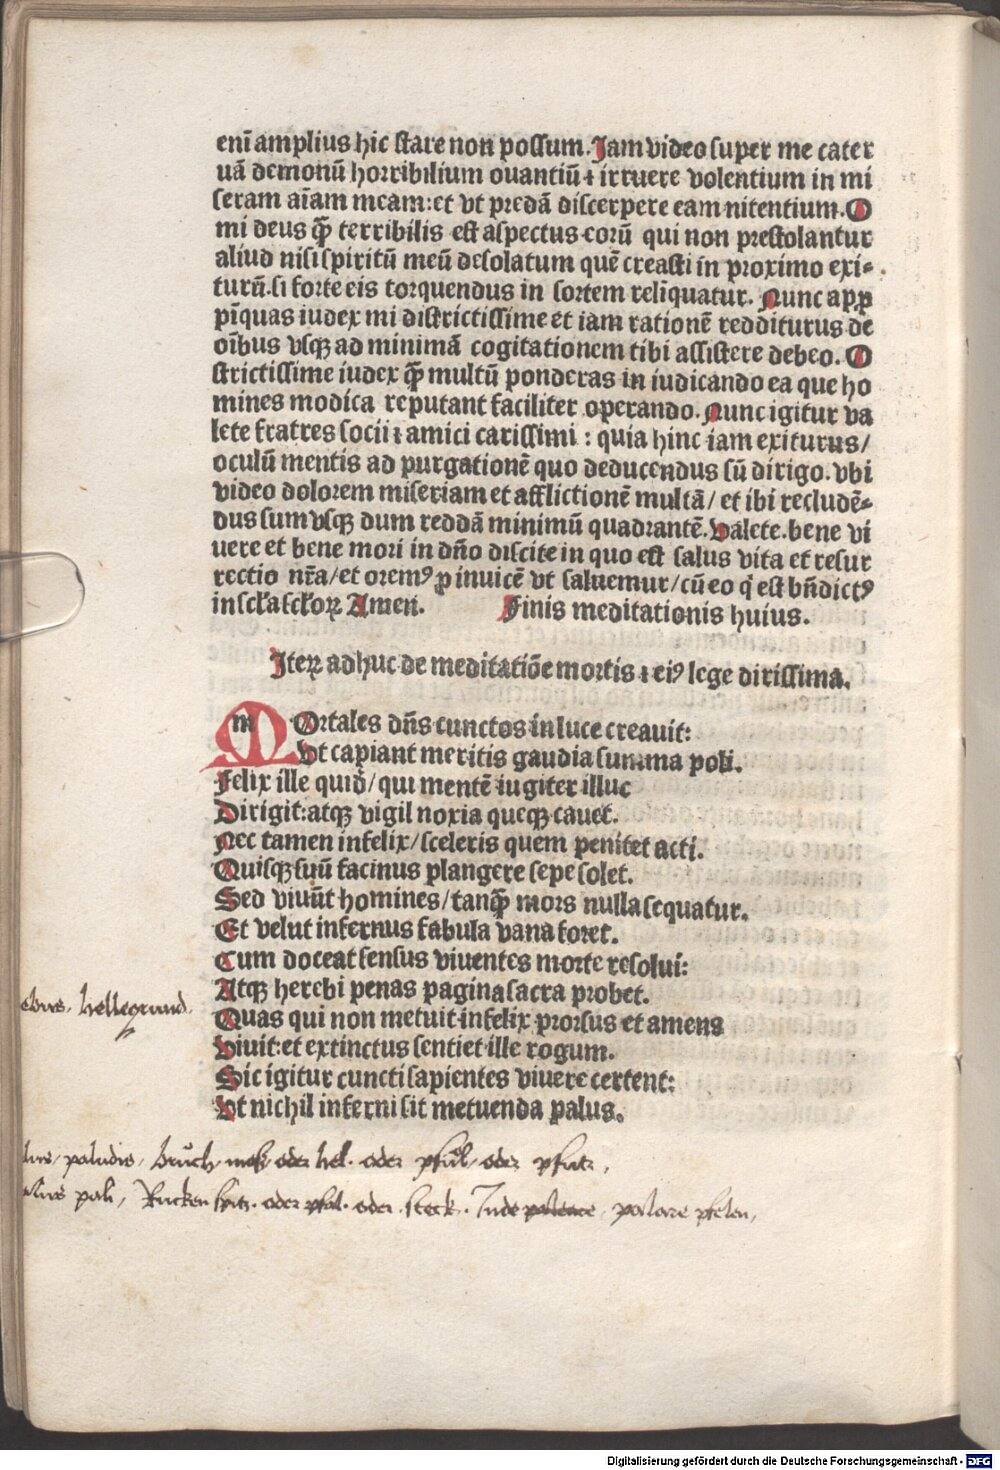 enī amplius hic stare non possum. Jam video super me cater
uā demonū horribilium ouantiū ⁊ irruere volentium in mi
seram aīam meam: et vt predā discerpere eam nitentium. O
mi deus qȝ terribilis est aspectus eorū qui non prestolantur
aliud nisi spiritū meū desolatum quē creasti in proximo exi-
turū. si forte eis torquendus in sortem relīquatur. Nunc apꝓ
pīquas iudex mi districtissime et iam rationē redditurus de
oībus vsqȝ ad minimā cogitationem tibi assistere debeo. O
strictissime iudex qȝ multū ponderas in iudicando ea que ho
mines modica reputant faciliter operando. Nunc igitur va
lete fratres socii ⁊ amici carissimi : quia hinc iam exiturus/
oculū mentis ad purgationē quo deducendus sū dirigo. vbi
video dolorem miseriam et afflictionē multā/ et ibi recludē-
dus sum vsqȝ dum reddā minimū quadrantē. Valete. bene vi
uere et bene mori in dn̄o discite in quo est salus vita et resur
rectio nr̄a/ et oremꝰ ꝓ inuicē vt saluemur/ cū eo q̇ est bn̄dictꝰ
in scl̄a scl̄oꝝ Amen. Finis meditationis huius.
Iteꝝ adhuc de meditatiōe mortis ⁊ eiꝰ lege dirissima.
MOrtales dn̄s cunctos in luce creauit:
Vt capiant meritis gaudia summa poli.
Felix ille quid̄/ qui mentē iugiter illuc
Dirigit: atqȝ vigil noxia queqȝ cauet.
Nec tamen infelix/ sceleris quem penitet acti.
Quisqȝ suū facinus plangere sepe solet.
Sed viuūt homines/ tanqȝ mors nulla sequatur.
Et velut infernus fabula vana foret.
Cum doceat sensus viuentes morte resolui:
Atqȝ herebi penas pagina sacra probet.
ebus. hellegrund.
Quas qui non metuit infelix prorsus et amens
Viuit: et extinctus sentiet ille rogum.
Sic igitur cuncti sapientes viuere certent:
Vt nichil inferni sit metuenda palus.
lus, paludis, brůch, mosz oder hel. oder pfůl, oder pfutz,
alus pali, Rucken spitz. oder pfal. oder steck. Inde palence, palare pfelen,
Digitalisierung gefördert durch die Deutsche Forschungsgemeinschaft - DFG